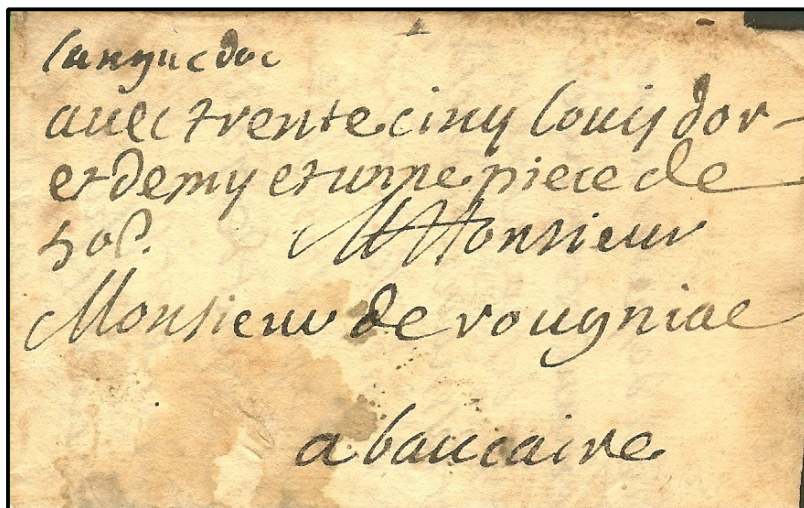 languedoc
avec trente cinq louis dor
et demy et unne piece de
Monsieur
Monsieur de rougniac
a baucaire